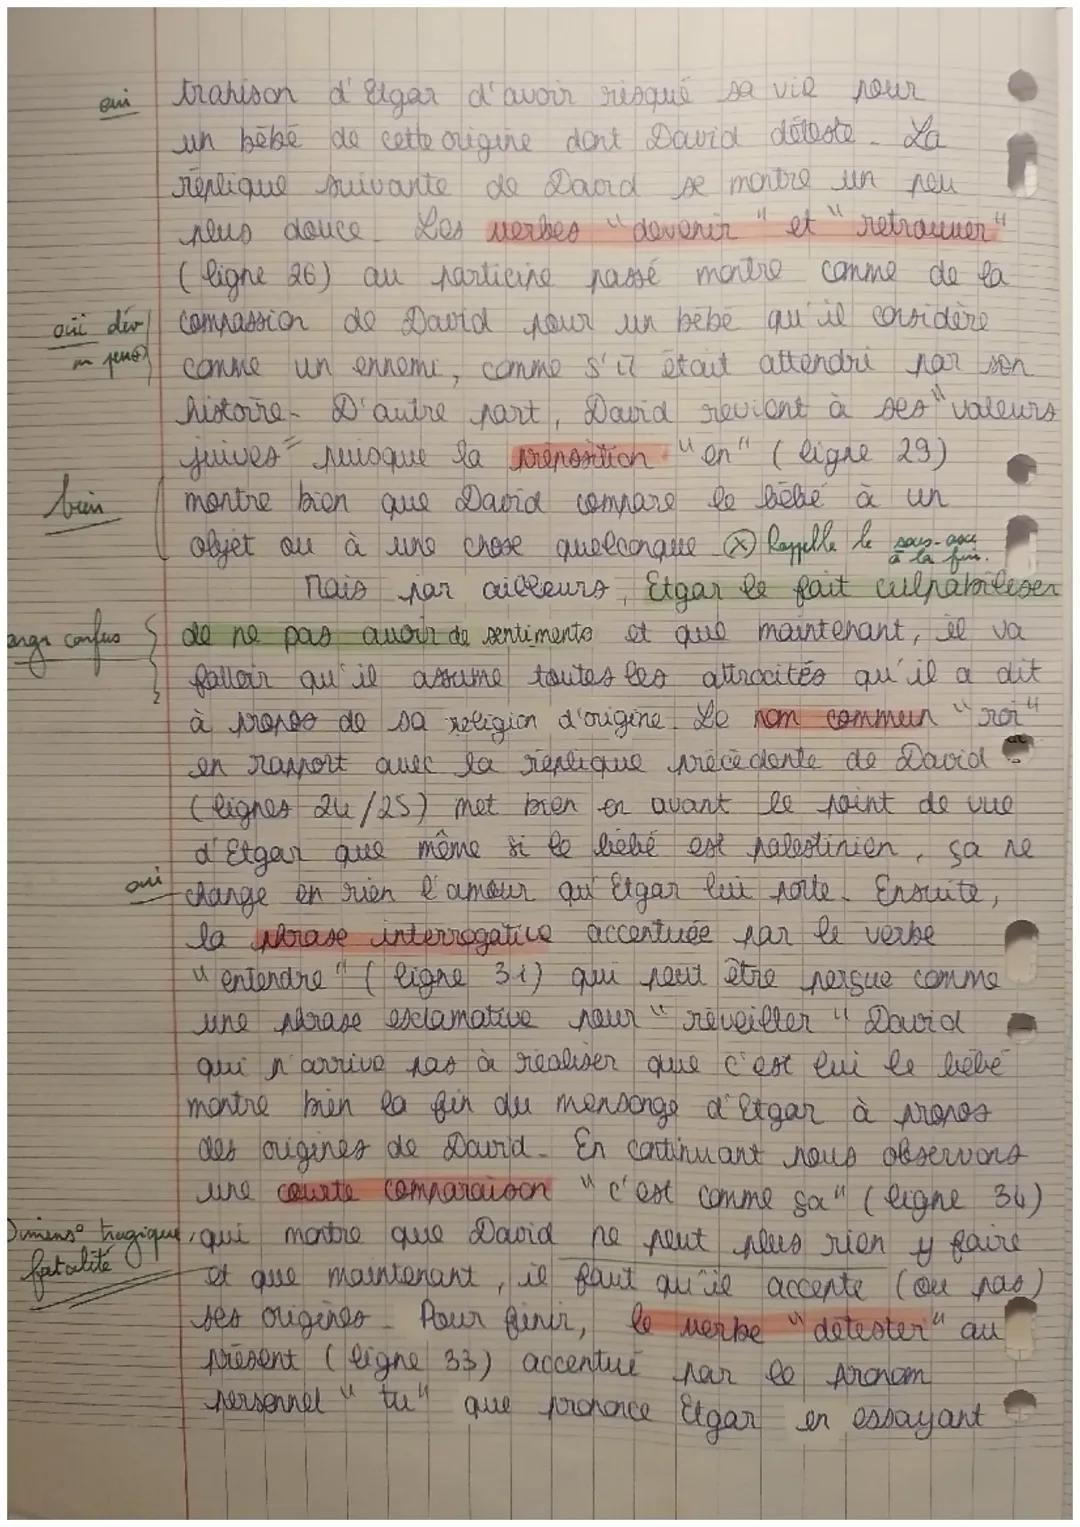 oui
trahison d'Etgar d'avoir risqué sa vie pour
un bébé de cette origine dont David déteste. La
réplique suivante de David se montre un peu
plus douce. Les verbes "devenir" et "retrouver"
(ligne 26) au participe passé montre comme de la
oui dév
un peu
compassion de David pour un bébé qu'il considère
comme un ennemi, comme s'il était attendri par son
histoire. D'autre part, David revient à ses "valeurs
juives" puisque la préposition "en" (ligne 29)
bien
montre bien que David compare le bébé à un
objet ou à une chose quelconque ⊗ Rappelle le sous-axe
à la fin.
Mais par ailleurs, Etgar le fait culpabiliser
confus
de ne pas avoir de sentiments et que maintenant, il va
falloir qu'il assume toutes les attrocités qu'il a dit
à propos de sa religion d'origine. Le nom commun "roi"
en rapport avec la réplique précédente de David
(lignes 24/25) met bien en avant le point de vue
d'Etgar que même si le bébé est palestinien, ça ne
oui
change en rien l'amour qu'Etgar lui porte. Ensuite,
la phrase interrogative accentuée par le verbe
"entendre" (ligne 31) qui peut être perçue comme
une phrase esclamative pour "réveiller" David
qui n'arrive pas à réaliser que c'est lui le bébé
montre bien la fin du mensonge d'Etgar à propos
des origines de David. En continuant nous observons
une courte comparaison "c'est comme ça" (ligne 34)
Dimens° tragique,
fatalité
qui montre que David ne peut plus rien y faire
et que maintenant, il faut qu'il accepte (ou pas)
ses origines. Pour finir, le verbe "détester" au
présent (ligne 33) accentué par le pronom
personnel "tu" que prononce Etgar en essayant